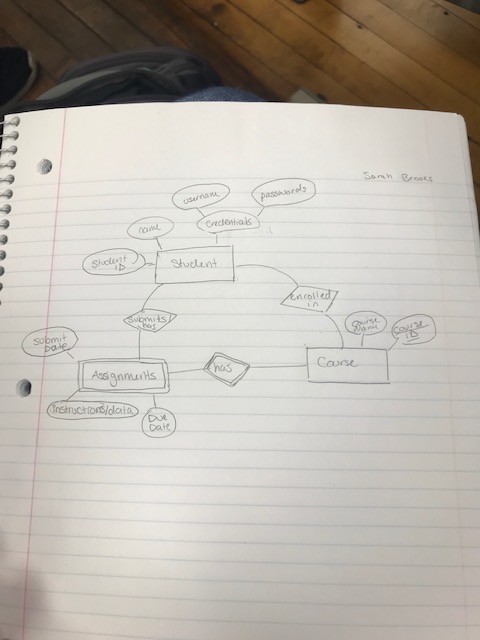 Sarah Brooks
username
passwords
credentials
name
Student
ID
Student
Enrolled
in
Submits
has
course
name
course
ID
submit
Date
Assignments
has
Course
instructions/data
Due
Date